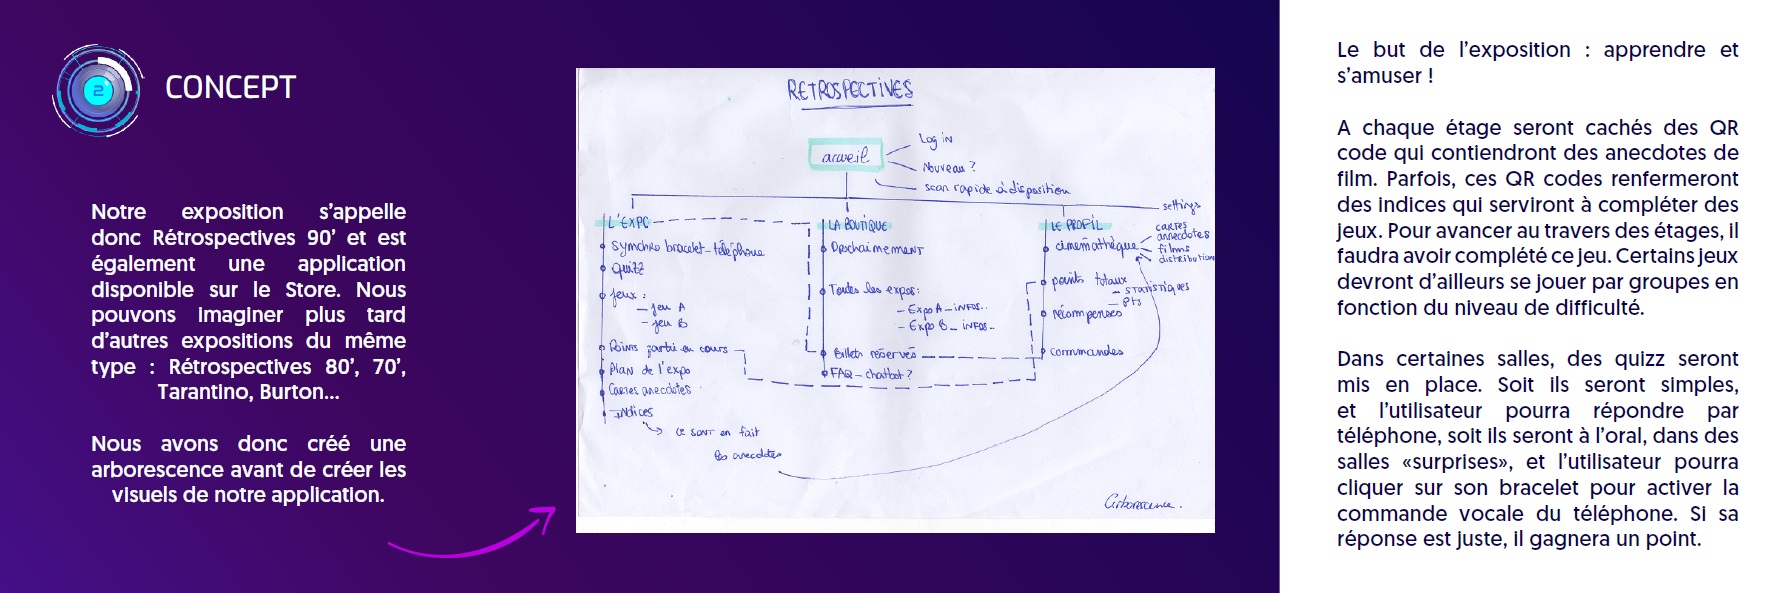 2
CONCEPT
Notre exposition s’appelle
donc Rétrospectives 90’ et est
également une application
disponible sur le Store. Nous
pouvons imaginer plus tard
d’autres expositions du même
type : Rétrospectives 80’, 70’,
Tarantino, Burton...
Nous avons donc créé une
arborescence avant de créer les
visuels de notre application.
RETROSPECTIVES
accueil
Log in
Nouveau ?
scan rapide à disposition
settings
L'EXPO
Synchro bracelet-téléphone
Quizz
Jeux :
- jeu A
- jeu B
Points partie en cours
Plan de l'expo
Cartes anecdotes
Indices
ce sont en fait
les anecdotes
LA BOUTIQUE
Prochainement
Toutes les expos:
- Expo A - infos..
- Expo B - infos..
Billets réservés
FAQ - chatbot ?
LE PROFIL
cinémathèque
cartes
anecdotes
films
distribution
points totaux
- statistiques
- pts
récompenses
commandes
Arborescence.
Le but de l’exposition : apprendre et
s’amuser !
A chaque étage seront cachés des QR
code qui contiendront des anecdotes de
film. Parfois, ces QR codes renfermeront
des indices qui serviront à compléter des
jeux. Pour avancer au travers des étages, il
faudra avoir complété ce jeu. Certains jeux
devront d’ailleurs se jouer par groupes en
fonction du niveau de difficulté.
Dans certaines salles, des quizz seront
mis en place. Soit ils seront simples,
et l’utilisateur pourra répondre par
téléphone, soit ils seront à l’oral, dans des
salles «surprises», et l’utilisateur pourra
cliquer sur son bracelet pour activer la
commande vocale du téléphone. Si sa
réponse est juste, il gagnera un point.